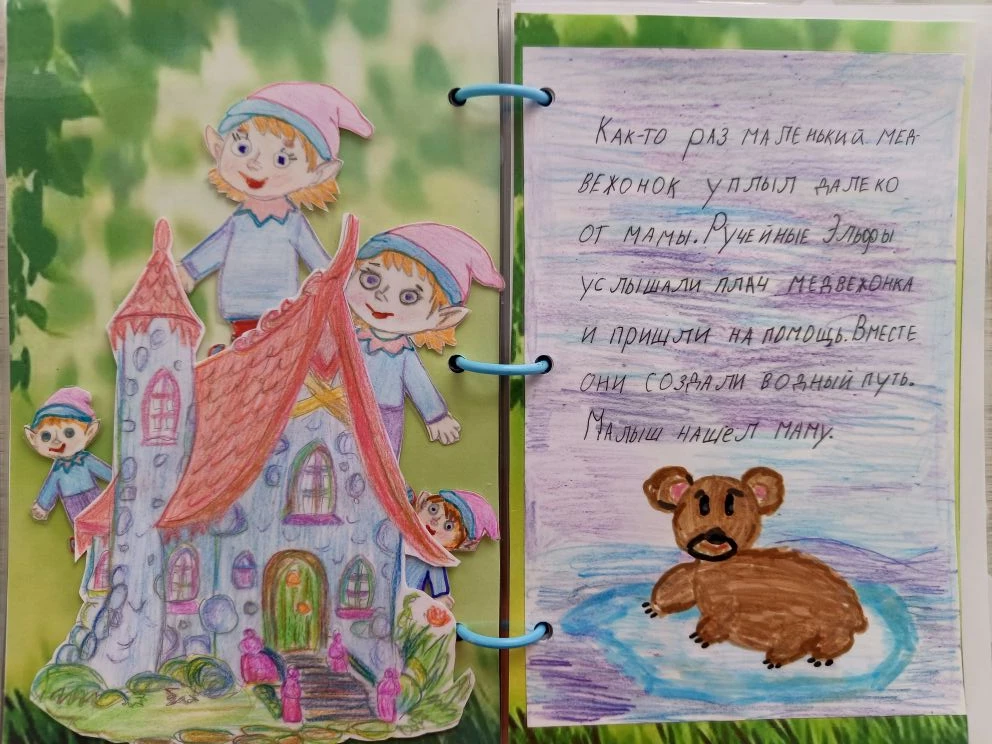 Как-то раз маленький мед-
вежонок уплыл далеко
от мамы. Ручейные Эльфы
услышали плач медвежонка
и пришли на помощь. Вместе
они создали водный путь.
Малыш нашел маму.